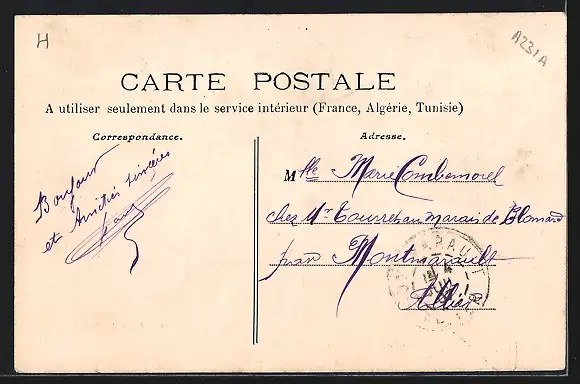 H
A231A
CARTE POSTALE
A utiliser seulement dans le service intérieur (France, Algérie, Tunisie)
Correspondance.
Adresse.
Bonjour
et Amitiés sincères
Mlle Marie Combemorel
chez Mr Tourret au marais de Blomard
par Montmarault
Allier